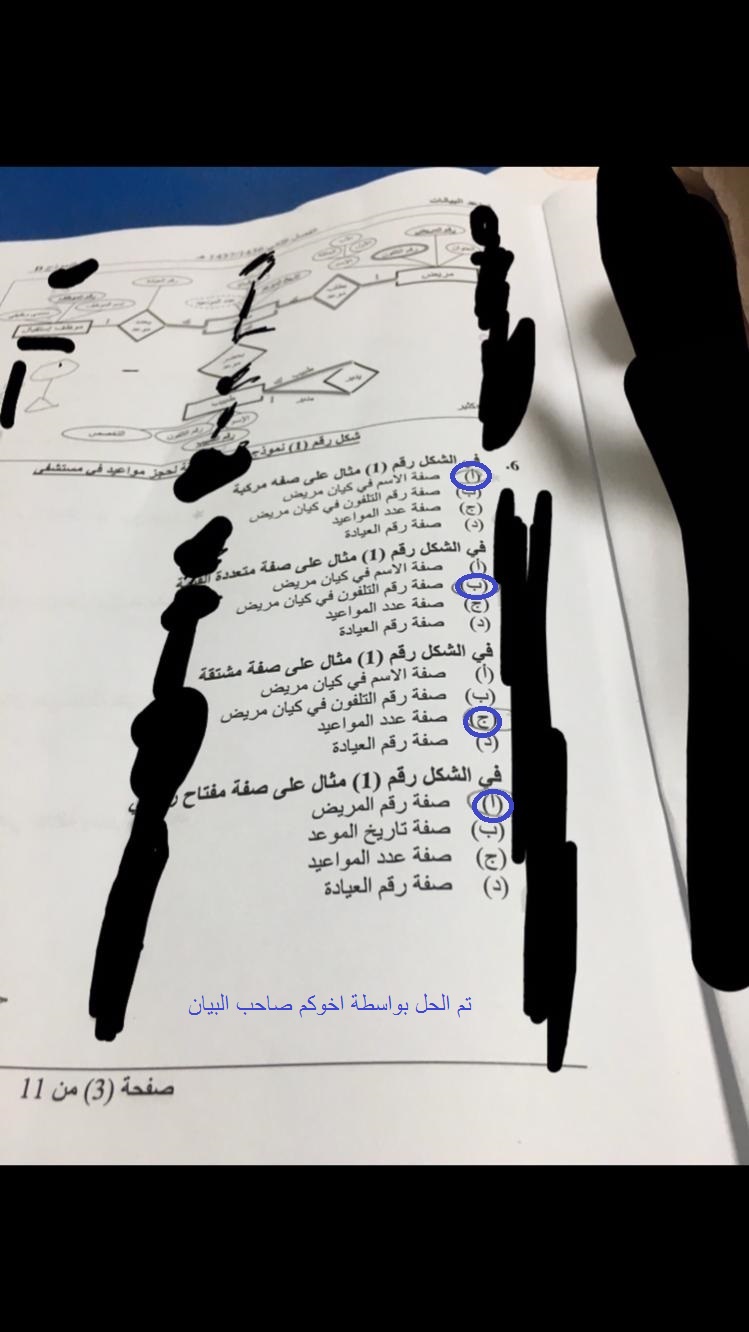 الفصل الثاني 1437/1436 هـ
رقم التلفون
مريض
رقم العيادة
موظف استقبال
طبيب
طبيب
التخصص
رقم التلفون
الاسم
شكل رقم (1) نموذج
لحجز مواعيد في مستشفى
6. في الشكل رقم (1) مثال على صفه مركبة
(أ) صفة الاسم في كيان مريض
(ب) صفة رقم التلفون في كيان مريض
(ج) صفة عدد المواعيد
(د) صفة رقم العيادة
في الشكل رقم (1) مثال على صفة متعددة
(أ) صفة الاسم في كيان مريض
(ب) صفة رقم التلفون في كيان مريض
(ج) صفة عدد المواعيد
(د) صفة رقم العيادة
في الشكل رقم (1) مثال على صفة مشتقة
(أ) صفة الاسم في كيان مريض
(ب) صفة رقم التلفون في كيان مريض
(ج) صفة عدد المواعيد
(د) صفة رقم العيادة
في الشكل رقم (1) مثال على صفة مفتاح
(أ) صفة رقم المريض
(ب) صفة تاريخ الموعد
(ج) صفة عدد المواعيد
(د) صفة رقم العيادة
تم الحل بواسطة اخوكم صاحب البيان
صفحة (3) من 11